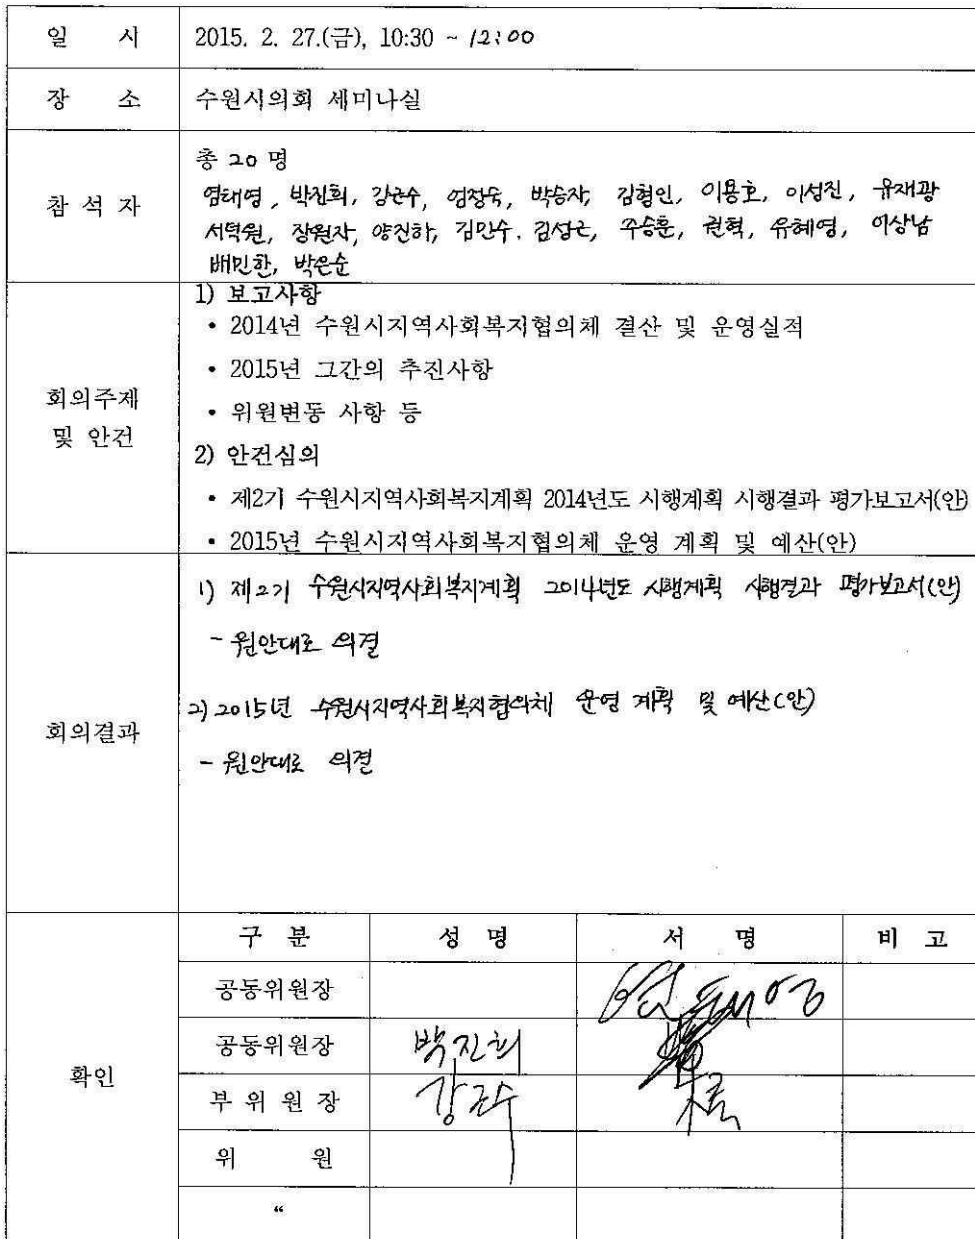 일 시 2015. 2. 27.(금), 10:30 ~ 12:00
장 소 수원시의회 세미나실
참 석 자
총 20 명
염태영, 박진희, 강근수, 엄정숙, 박승자, 김형인, 이용호, 이성진, 유재광
서덕원, 장원자, 양진하, 김민수, 김성근, 주승훈, 권혁, 유혜영, 이상남
배민한, 박은순
회의주제
및 안건
1) 보고사항
• 2014년 수원시지역사회복지협의체 결산 및 운영실적
• 2015년 그간의 추진사항
• 위원변동 사항 등
2) 안건심의
• 제2기 수원시지역사회복지계획 2014년도 시행계획 시행결과 평가보고서(안)
• 2015년 수원시지역사회복지협의체 운영 계획 및 예산(안)
회의결과
1) 제2기 수원시지역사회복지계획 2014년도 시행계획 시행결과 평가보고서(안)
- 원안대로 의결
2) 2015년 수원시지역사회복지협의체 운영 계획 및 예산(안)
- 원안대로 의결
확인
구 분 성 명 서 명 비 고
공동위원장 염태영
공동위원장 박진희
부 위 원 장 강근수
위 원
“